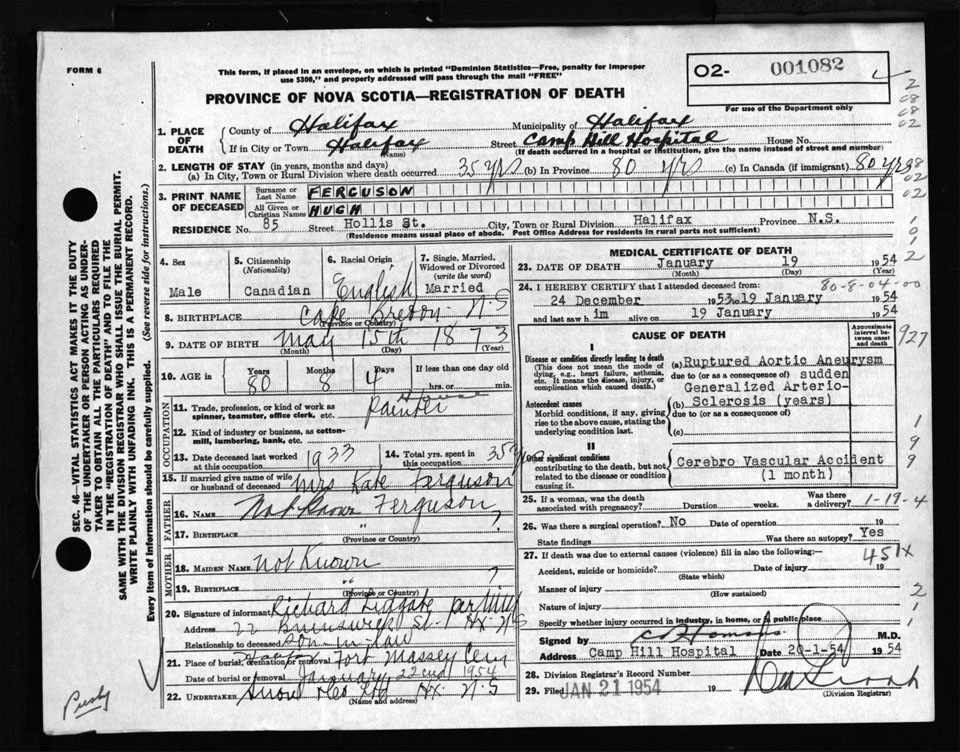 FORM 6
This form, if placed in an envelope, on which is printed "Dominion Statistics—Free, penalty for improper
use $300," and properly addressed will pass through the mail "FREE"
O2- 001082
For use of the Department only
PROVINCE OF NOVA SCOTIA—REGISTRATION OF DEATH
1. PLACE OF DEATH County of Halifax Municipality of Halifax
If in City or Town Halifax (Name) Street Camp Hill Hospital House No.
(If death occurred in a hospital or institution, give the name instead of street and number)
2. LENGTH OF STAY (in years, months and days)
(a) In City, Town or Rural Division where death occurred 35 yrs (b) In Province 80 yrs (c) In Canada (if immigrant) 80 yrs
3. PRINT NAME OF DECEASED Surname or Last Name FERGUSON
All Given or Christian Names HUGH
RESIDENCE No. 85 Street Hollis St. City, Town or Rural Division Halifax Province N.S.
(Residence means usual place of abode. Post Office Address for residents in rural parts not sufficient)
4. Sex Male
5. Citizenship (Nationality) Canadian
6. Racial Origin English
7. Single, Married, Widowed or Divorced (write the word) Married
8. BIRTHPLACE Cape Breton N-S
(Province or Country)
9. DATE OF BIRTH May 15th 1873
(Month) (Day) (Year)
10. AGE in Years 80 Months 8 Days 4 If less than one day hrs. or min.
OCCUPATION
11. Trade, profession, or kind of work as spinner, teamster, office clerk, etc. House Painter
12. Kind of industry or business, as cotton-mill, lumbering, bank, etc.
13. Date deceased last worked at this occupation 1933
14. Total yrs. spent in this occupation 35 yrs
15. If married give name of wife or husband of deceased Mrs Kate Ferguson
FATHER
16. NAME Not Known Ferguson
17. BIRTHPLACE " ?
(Province or Country)
MOTHER
18. MAIDEN NAME Not Known
19. BIRTHPLACE " ?
(Province or Country)
20. Signature of informant Richard Liggate per
Address 22 Brunswick St- Hx- N-S
Relationship to deceased Son-in-law
21. Place of burial, cremation or removal Fort Massey Cem
Date of burial or removal January 22nd 1954
22. UNDERTAKER Snow & Co Ltd Hx. N-S
(Name and address)
MEDICAL CERTIFICATE OF DEATH
23. DATE OF DEATH January 19 1954
(Month) (Day) (Year)
24. I HEREBY CERTIFY that I attended deceased from: 80-8-04-00
24 December 1953, 19 January 1954
and last saw him alive on 19 January 1954
CAUSE OF DEATH
Approximate interval between onset and death
927
I
Disease or condition directly leading to death
(This does not mean the mode of dying, e.g., heart failure, asthenia, etc. It means the disease, injury, or complication which caused death.)
(a) Ruptured Aortic Aneurysm
due to (or as a consequence of) sudden
Generalized Arterio-
(b) Sclerosis (years)
due to (or as a consequence of)
(c)
Antecedent causes
Morbid conditions, if any, giving rise to the above cause, stating the underlying condition last.
II
Other significant conditions
contributing to the death, but not related to the disease or condition causing it.
Cerebro Vascular Accident
(1 month)
25. If a woman, was the death associated with pregnancy? Duration weeks. Was there a delivery? 1-19-4
26. Was there a surgical operation? No Date of operation 19
State findings Was there an autopsy? Yes
27. If death was due to external causes (violence) fill in also the following:— 451X
Accident, suicide or homicide? Date of injury 19
(State which)
Manner of injury
(How sustained)
Nature of injury
Specify whether injury occurred in industry, in home, or in public place
Signed by M.D.
Address Camp Hill Hospital Date 20-1-54 1954
28. Division Registrar's Record Number
29. Filed JAN 21 1954 19
(Division Registrar)
SEC. 46—VITAL STATISTICS ACT MAKES IT THE DUTY
OF THE UNDERTAKER OR PERSON ACTING AS UNDER-
TAKER TO OBTAIN ALL THE PARTICULARS REQUIRED
IN THE "REGISTRATION OF DEATH" AND TO FILE THE
SAME WITH THE DIVISION REGISTRAR WHO SHALL ISSUE THE BURIAL PERMIT.
WRITE PLAINLY WITH UNFADING INK. THIS IS A PERMANENT RECORD.
Every item of information should be carefully supplied. (See reverse side for instructions.)